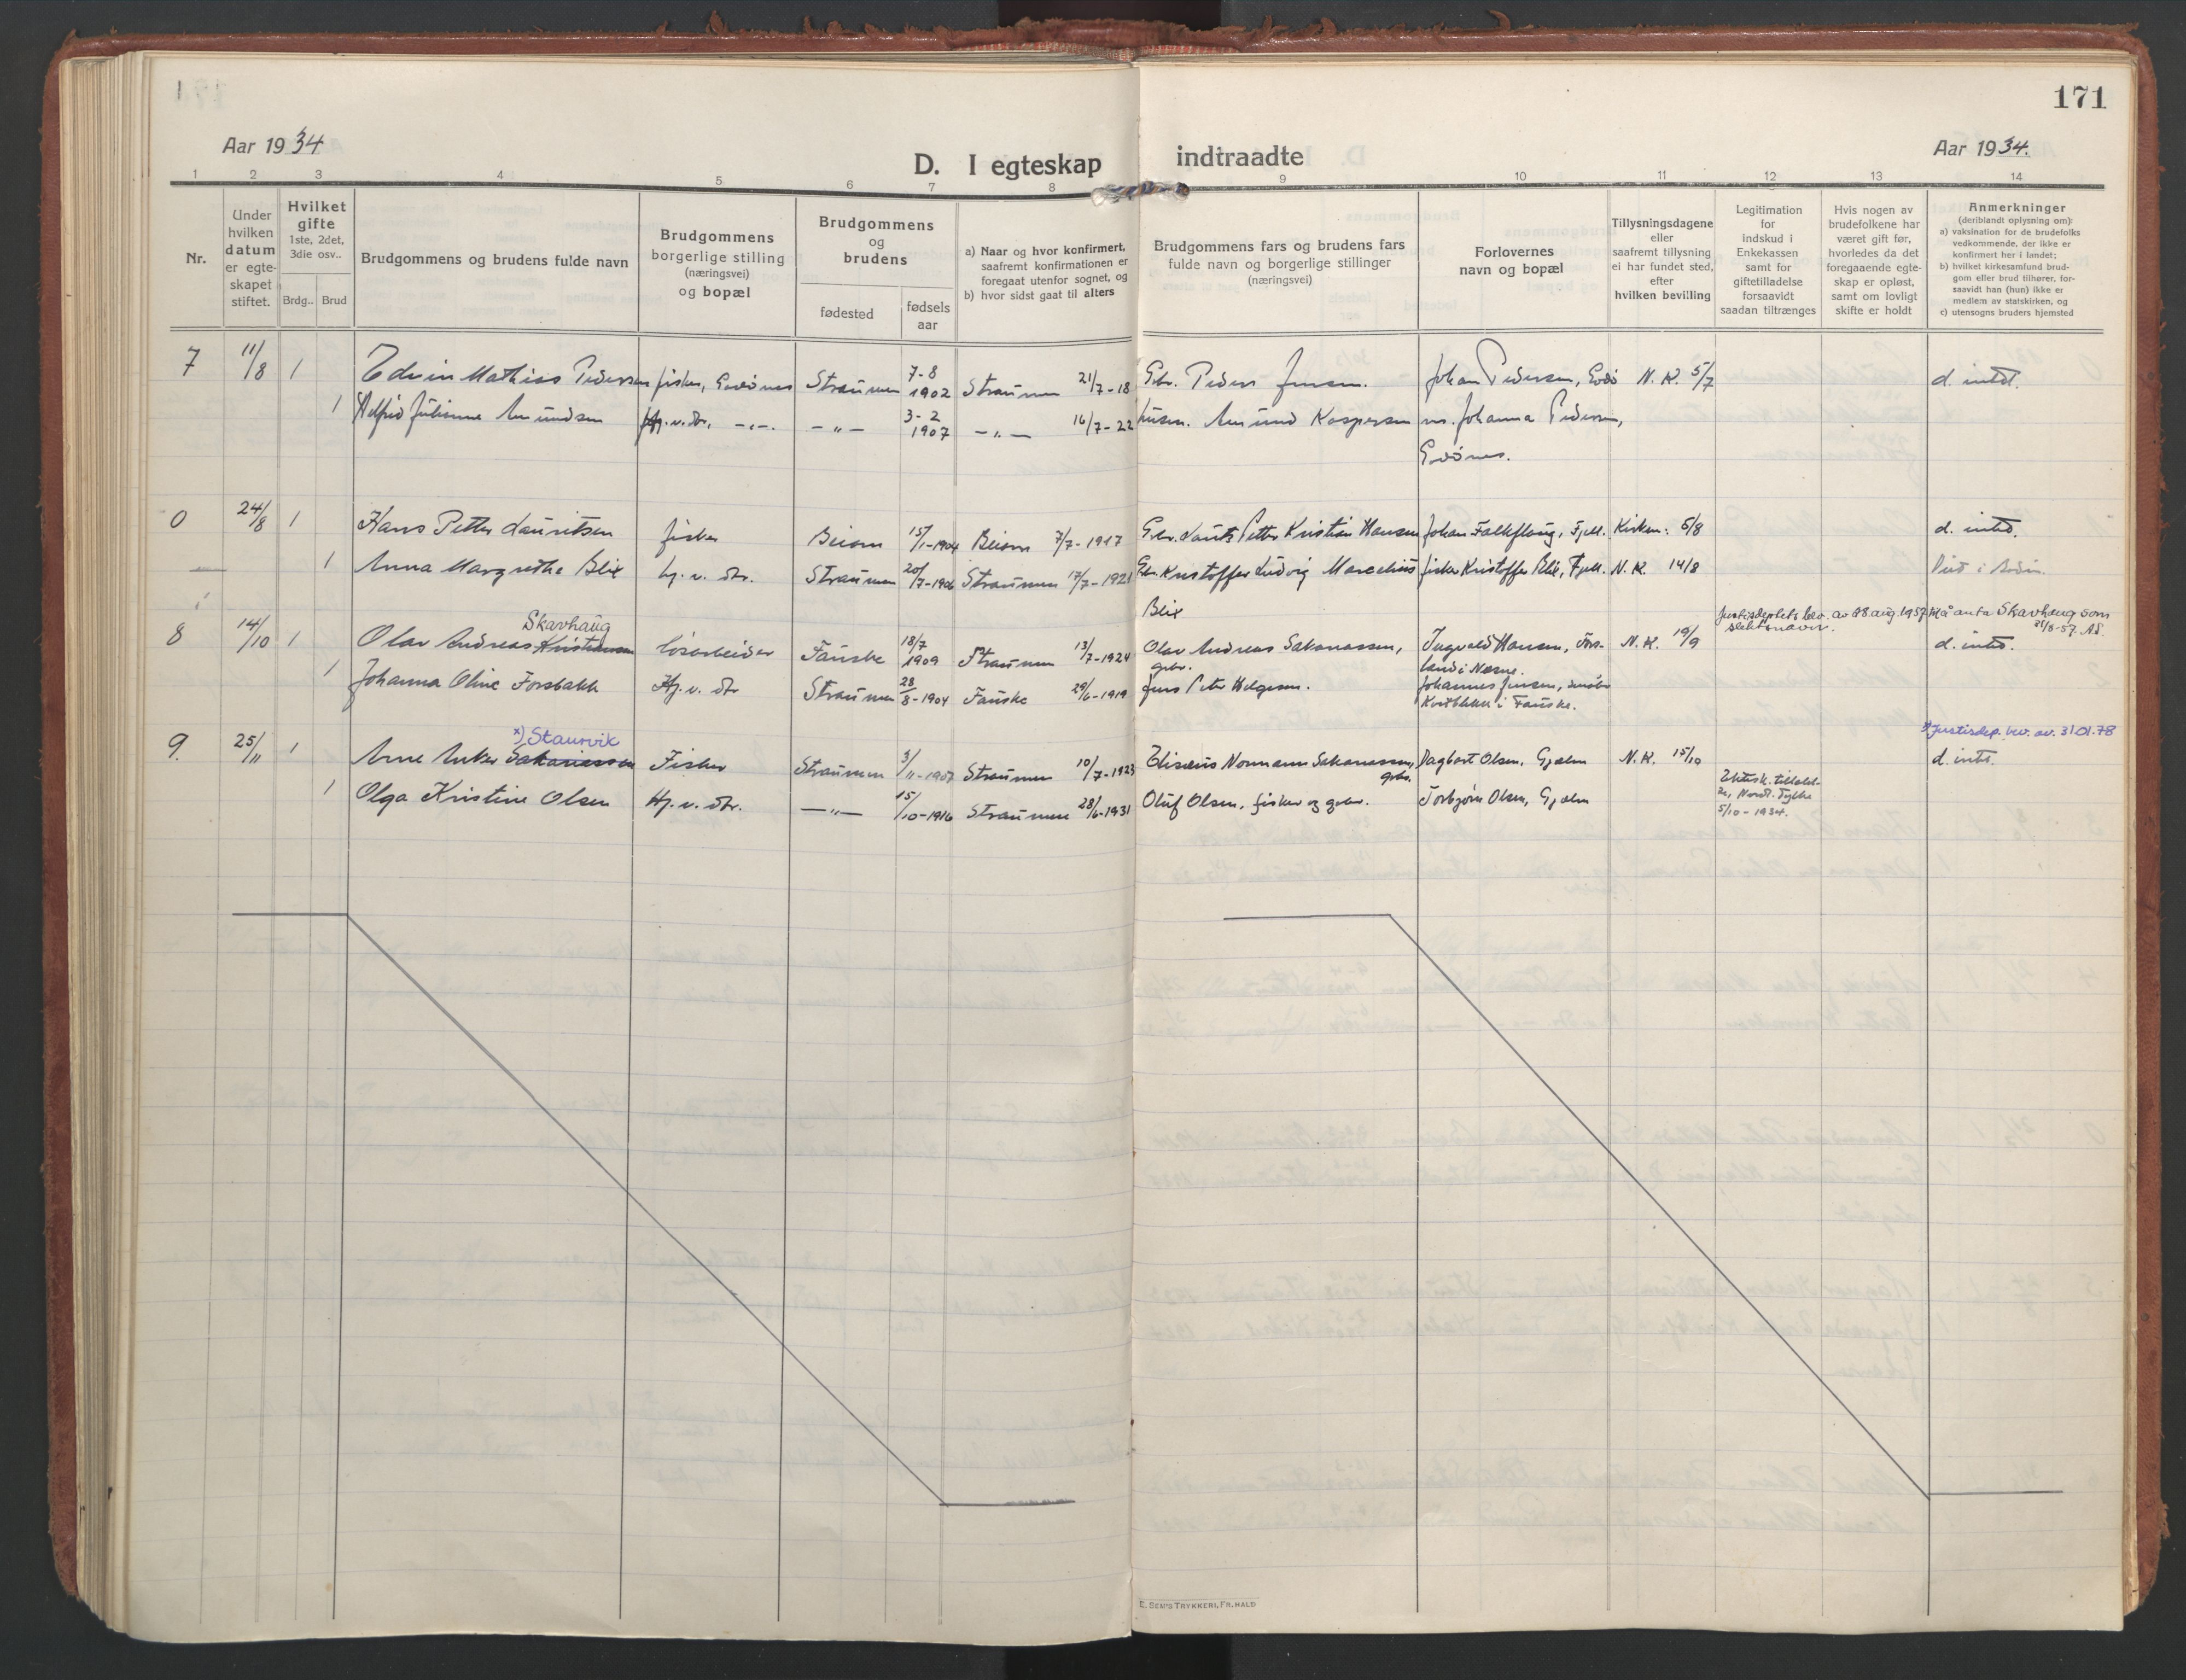 171
Aar 1934
D. I egteskap indtraadte
Aar 1934.
1 2 3 4 5 6 7 8 9 10 11 12 13 14
Nr.
Under
hvilken
datum
er egte-
skapet
stiftet.
Hvilket
gifte
1ste, 2det,
3die osv..
Brdg.. Brud
Brudgommens og brudens fulde navn
Brudgommens
borgerlige stilling
(næringsvei)
og bopæl
Brudgommens
og
brudens
fødested
fødsels
aar
a) Naar og hvor konfirmert,
saafremt konfirmationen er
foregaat utenfor sognet, og
b) hvor sidst gaat til alters
Brudgommens fars og brudens fars
fulde navn og borgerlige stillinger
(næringsvei)
Forlovernes
navn og bopæl
Tillysningsdagene
eller
saafremt tillysning
ei har fundet sted,
efter
hvilken bevilling
Legitimation
for
indskud i
Enkekassen
samt for
giftetilladelse
forsaavidt
saadan tiltrænges
Hvis nogen av
brudefolkene har
været gift før,
hvorledes da det
foregaaende egte-
skap er opløst,
samt om lovligt
skifte er holdt
Anmerkninger
(deriblandt oplysning om):
a) vaksination for de brudefolks
vedkommende, der ikke er
konfirmert her i landet;
b) hvilket kirkesamfund brud-
gom eller brud tilhører, for-
saavidt han (hun) ikke er
medlem av statskirken, og
c) utensogns bruders hjemsted
7 11/8 1 Edvin Mathias Pedersen fisker, Godönes Straumen 7-8 1902 Straumen 21/7-18 Gbr. Peder Jensen. Johan Pedersen, Godö N. K. 5/7 d. intet.
1 Alfrid Julianne Amundsen Hj.v.dtr. -"-. -"- 3-2 1907 -"- 16/7-22 husm. Amund Kaspersen Johanna Pedersen,
Godönes.
0 24/8 1 Hans Petter Lauritsen fisker Beiarn 15/1-1904 Beiarn 7/7-1917 Gbr. Lauritz Petter Kristian Hansen Johan Falkflaug, Fjell. Kirken: 5/8 d. intet.
1 Anna Margrethe Blix hj. v. dtr. Straumen 20/7-1906 Straumen 17/7-1921 Gbr. Kristoffer Ludvig Marcelius fisker Kristoffer Blix, Fjell. N. K. 14/8 Viet i Bodin.
Blix
Justisdeptets bev. av 28 aug. 1957 til å anta Skavhaug som
slektsnavn. 31/8-57. AS.
Skavhaug
8 14/10 1 Olav Andreas Kristensen lösarbeider Fauske 18/7 1909 Straumen 13/7-1924 Olav Andreas Sakariassen, Ingvald Hansen, Fors- N. K. 19/9 d. intet.
gbr. land i Næsne.
1 Johanna Oline Forsbakk Hj. v. dtr Straumen 28/8-1904 Fauske 29/6-1919 Jens Peter Helgesen. Johannes Jensen,
Kvitblikk i Fauske.
x) Justisdep. bev. av. 31.01.78
x) Staurvik
9. 25/11 1 Arne Anker Sakariassen Fisker Straumen 3/11-1907 Straumen 10/7-1923 Elisæus Normann Sakariassen, Dagbart Olsen, Gjælen N. K. 15/10 d. intet.
gbr.
1 Olga Kristine Olsen Hj. v. dtr. -"- 15/10-1916 Straumen 28/6-1931 Oluf Olsen, fisker og gbr. Torbjörn Olsen, Gjælen Ektesk. tillatel-
se, Nordl. Fylke
5/10-1934.
E. SEM'S TRYKKERI, FR.HALD